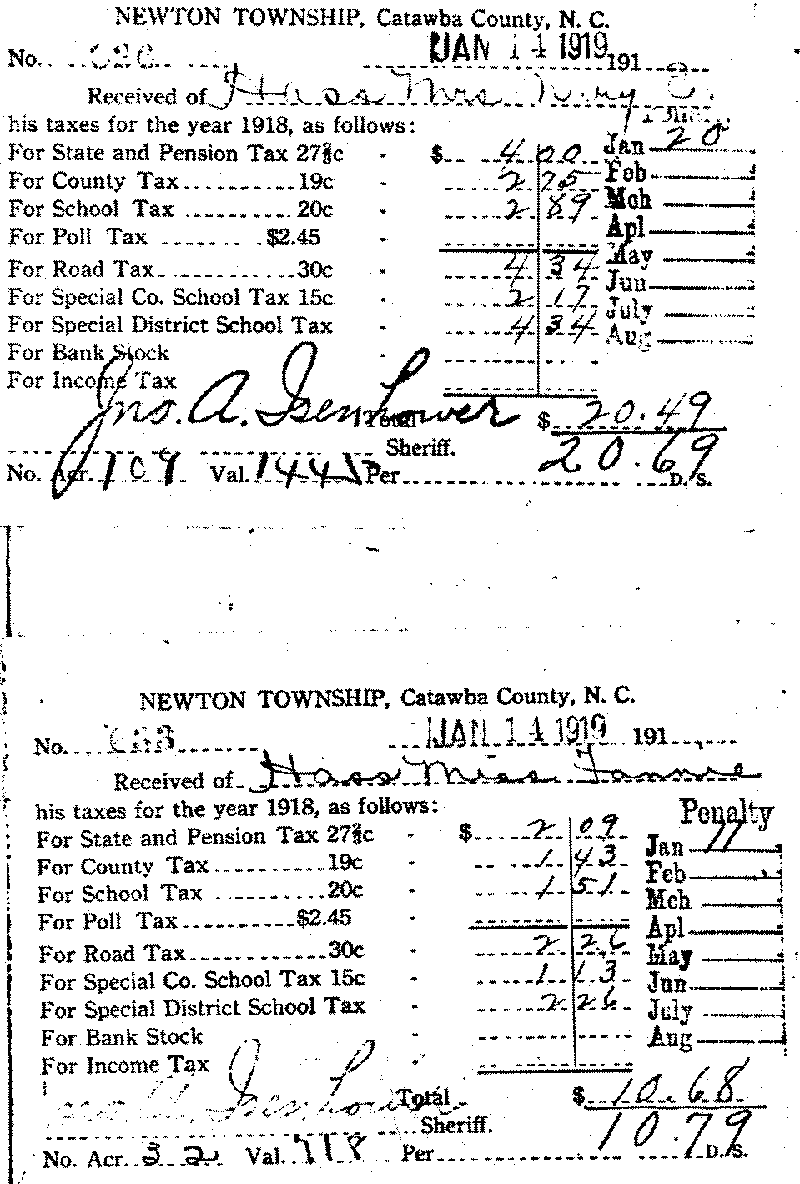 NEWTON TOWNSHIP, Catawba County, N. C.
No. JAN 14 1919 191
Received of Hass Mrs E.
his taxes for the year 1918, as follows:
Jan 20
For State and Pension Tax 27⅔c - $ 4 00
Feb
For County Tax 19c - 2 75
Mch
For School Tax 20c - 2 89
Apl
For Poll Tax $2.45 -
May
For Road Tax 30c - 4 34
Jun
For Special Co. School Tax 15c - 2 17
July
For Special District School Tax - 4 34
Aug
For Bank Stock -
For Income Tax -
Jno. A. Isenhower Total $ 20.49
Sheriff. 20.69
No. Acr. 109 Val. 1445 Per D. S.
NEWTON TOWNSHIP, Catawba County, N. C.
No. 633 JAN 14 1919 191
Received of Hass Miss Fannie
his taxes for the year 1918, as follows:
Penalty
For State and Pension Tax 27⅔c - $ 2 09
Jan 11
For County Tax 19c - 1 43
Feb
For School Tax 20c - 1 51
Mch
For Poll Tax $2.45 -
Apl
For Road Tax 30c - 2 26
May
For Special Co. School Tax 15c - 1 13
Jun
For Special District School Tax - 2 26
July
For Bank Stock -
Aug
For Income Tax -
Jno A. Isenhower Total $ 10.68
Sheriff. 10.79
No. Acr. 32 Val. 718 Per D. S.